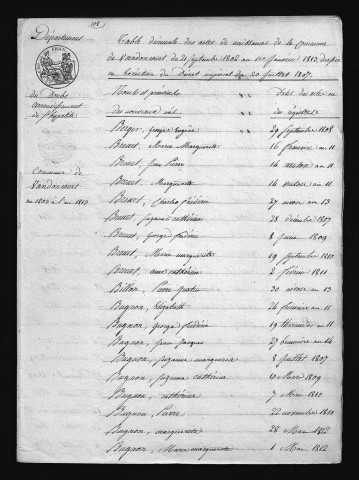 108
Département
du Doubs
arrondissement
de St hypolite
Commune de
Vandoncourt
an 1802 à l'an 1813
Table décennale des actes de naissance de la commune
de Vandoncourt, du 21 Septembre 1802 au 1er janvier 1813, dressée
en Exécution du Décret impérial du 20 juillet 1807.
Noms et prénoms " Date des actes ou
des nouveaux nés " des registres
Berger, George Eugène 29 Septembre 1808
Brenet, Marie Marguerite 16 frimaire an 11
Brenet, Jean Pierre 14 ventose an 11
Brenet, Marguerite 14 ventose an 11
Brenet, Charles frédéric 27 nivose an 13
Brenet, Suzanne cathérine 28 décembre 1807
Brenet, George frédéric 8 juin 1809
Brenet, Marie marguerite 19 Septembre 1810
Brenet, anne cathérine 2 février 1811
Billon, Pierre 30 nivose an 13
Bugnon, Elizabeth 24 frimaire an 11
Bugnon, George frédéric 19 thermidor an 11
Bugnon, jean jacques 27 brumaire an 14
Bugnon, Suzanne marguerite 8 juillet 1807
Bugnon, Suzanne cathérine 10 Mars 1809
Bugnon, cathérine 7 Mai 1810
Bugnon, Pierre 22 novembre 1810
Bugnon, marguerite 28 Mai 1812
Bugnon, Marie marguerite 1 Mai 1812